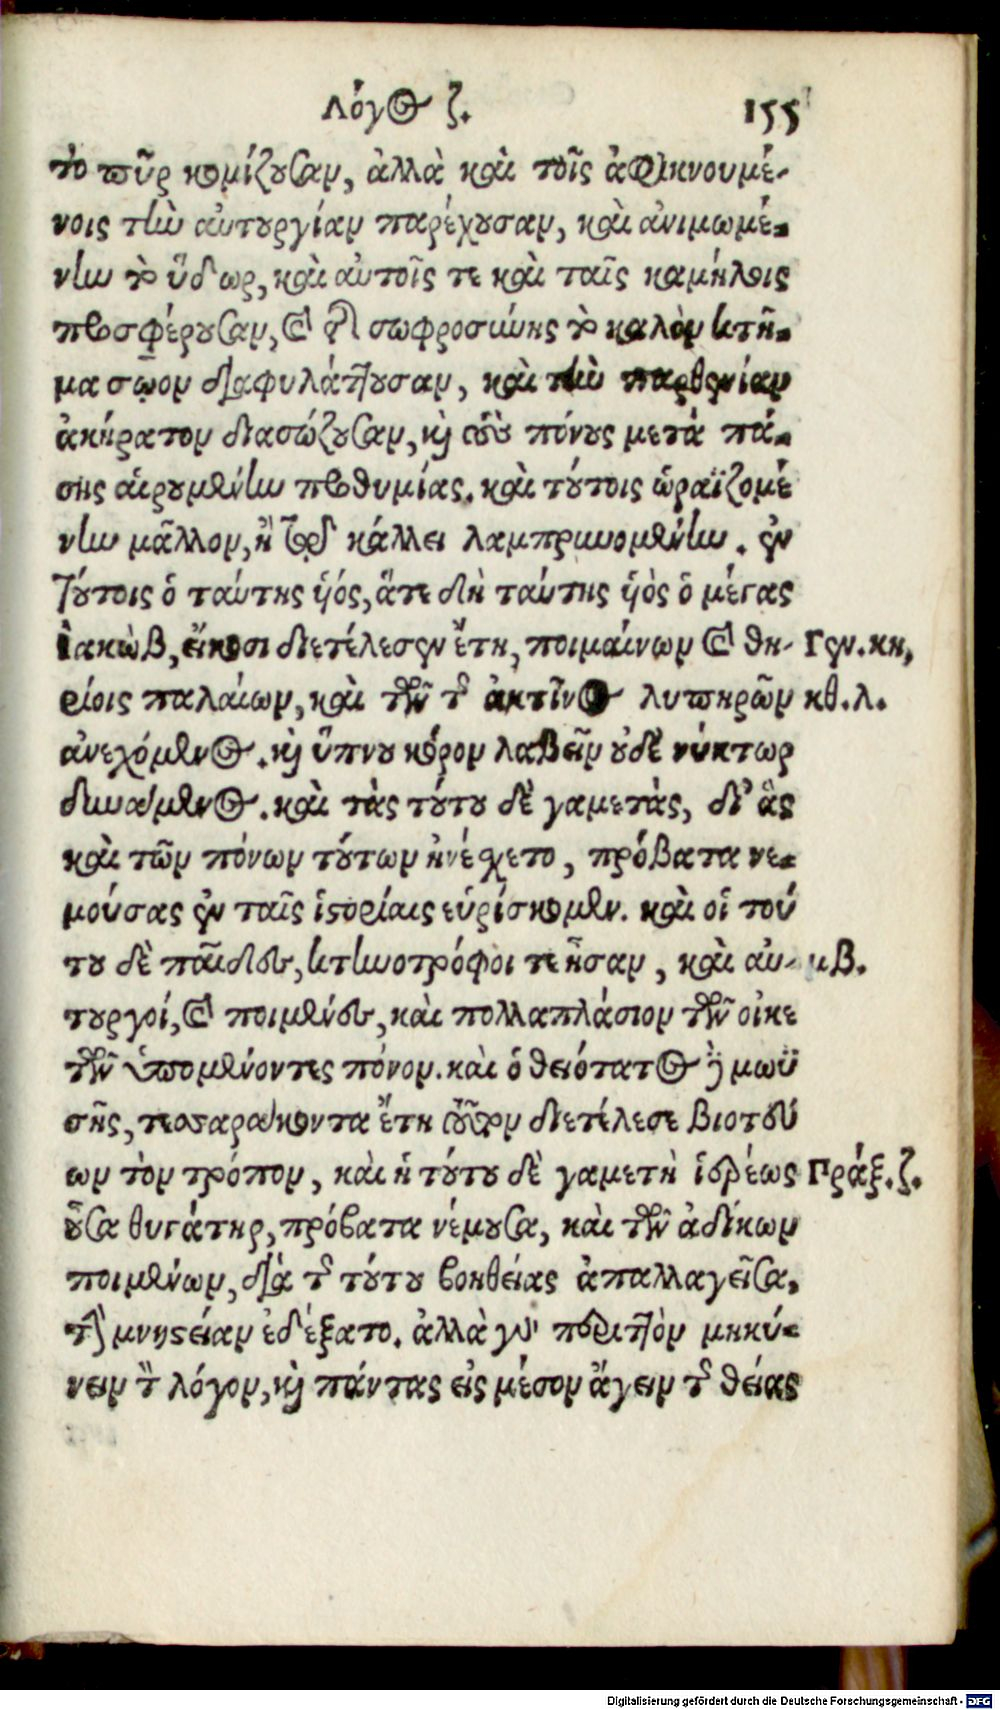 Λόγος ζ. 155
τὸ πῦρ κομίζουσαν, ἀλλὰ καὶ τοῖς ἀφικνουμέ-
νοις τὴν αὐτουργίαν παρέχουσαν, καὶ ἀνιμωμέ-
νην τὸ ὕδωρ, καὶ αὐτοῖς τε καὶ ταῖς καμήλοις
προσφέρουσαν, καὶ τῆς σωφροσύνης τὸ καλὸν κτῆ-
μα σῶον διαφυλάττουσαν, καὶ τὴν παρθενίαν
ἀκήρατον διασώζουσαν, καὶ τοὺς πόνους μετὰ πά-
σης αἱρουμένην προθυμίας. καὶ τούτοις ὡραϊζομέ
νην μᾶλλον, ἢ τῷ κάλλει λαμπρυνομένην. ἐν
τούτοις ὁ ταύτης υἱός, ἅτε δὴ ταύτης υἱὸς ὁ μέγας
Ἰακὼβ, εἴκοσι διετέλεσεν ἔτη, ποιμαίνων καὶ θη- Γεν. κη,
ρίοις παλαίων, καὶ τῶν τῆς ἀκτῖνος λυπηρῶν κθ. λ.
ἀνεχόμενος. καὶ ὕπνου κόρον λαβεῖν οὐδὲ νύκτωρ
δυνάμενος. καὶ τὰς τούτου δὲ γαμετὰς, δι' ἃς
καὶ τῶν πόνων τούτων ἠνέσχετο, πρόβατα νε-
μούσας ἐν ταῖς ἱστορίαις εὑρίσκομεν. καὶ οἱ τού
του δὲ παῖδες, κτηνοτρόφοι τε ἦσαν, καὶ αὐ- μβ.
τουργοί, καὶ ποιμένες, καὶ πολλαπλάσιον τῶν οἰκε
τῶν ὑπομένοντες πόνον. καὶ ὁ θειότατος δὲ μωϋ
σῆς, τεσσαράκοντα ἔτη τοῦτον διετέλεσε βιοτεύ
ων τὸν τρόπον, καὶ ἡ τούτου δὲ γαμετὴ ἱερέως Πράξ. ζ.
οὖσα θυγάτηρ, πρόβατα νέμουσα, καὶ τῶν ἀδίκων
ποιμένων, διὰ τῆς τούτου βοηθείας ἀπαλλαγεῖσα,
τὴν μνηστείαν ἐδέξατο. ἀλλὰ γὰρ περιττὸν μηκύ-
νειν τὸν λόγον, καὶ πάντας εἰς μέσον ἄγειν τῆς θείας
Digitalisierung gefördert durch die Deutsche Forschungsgemeinschaft - DFG